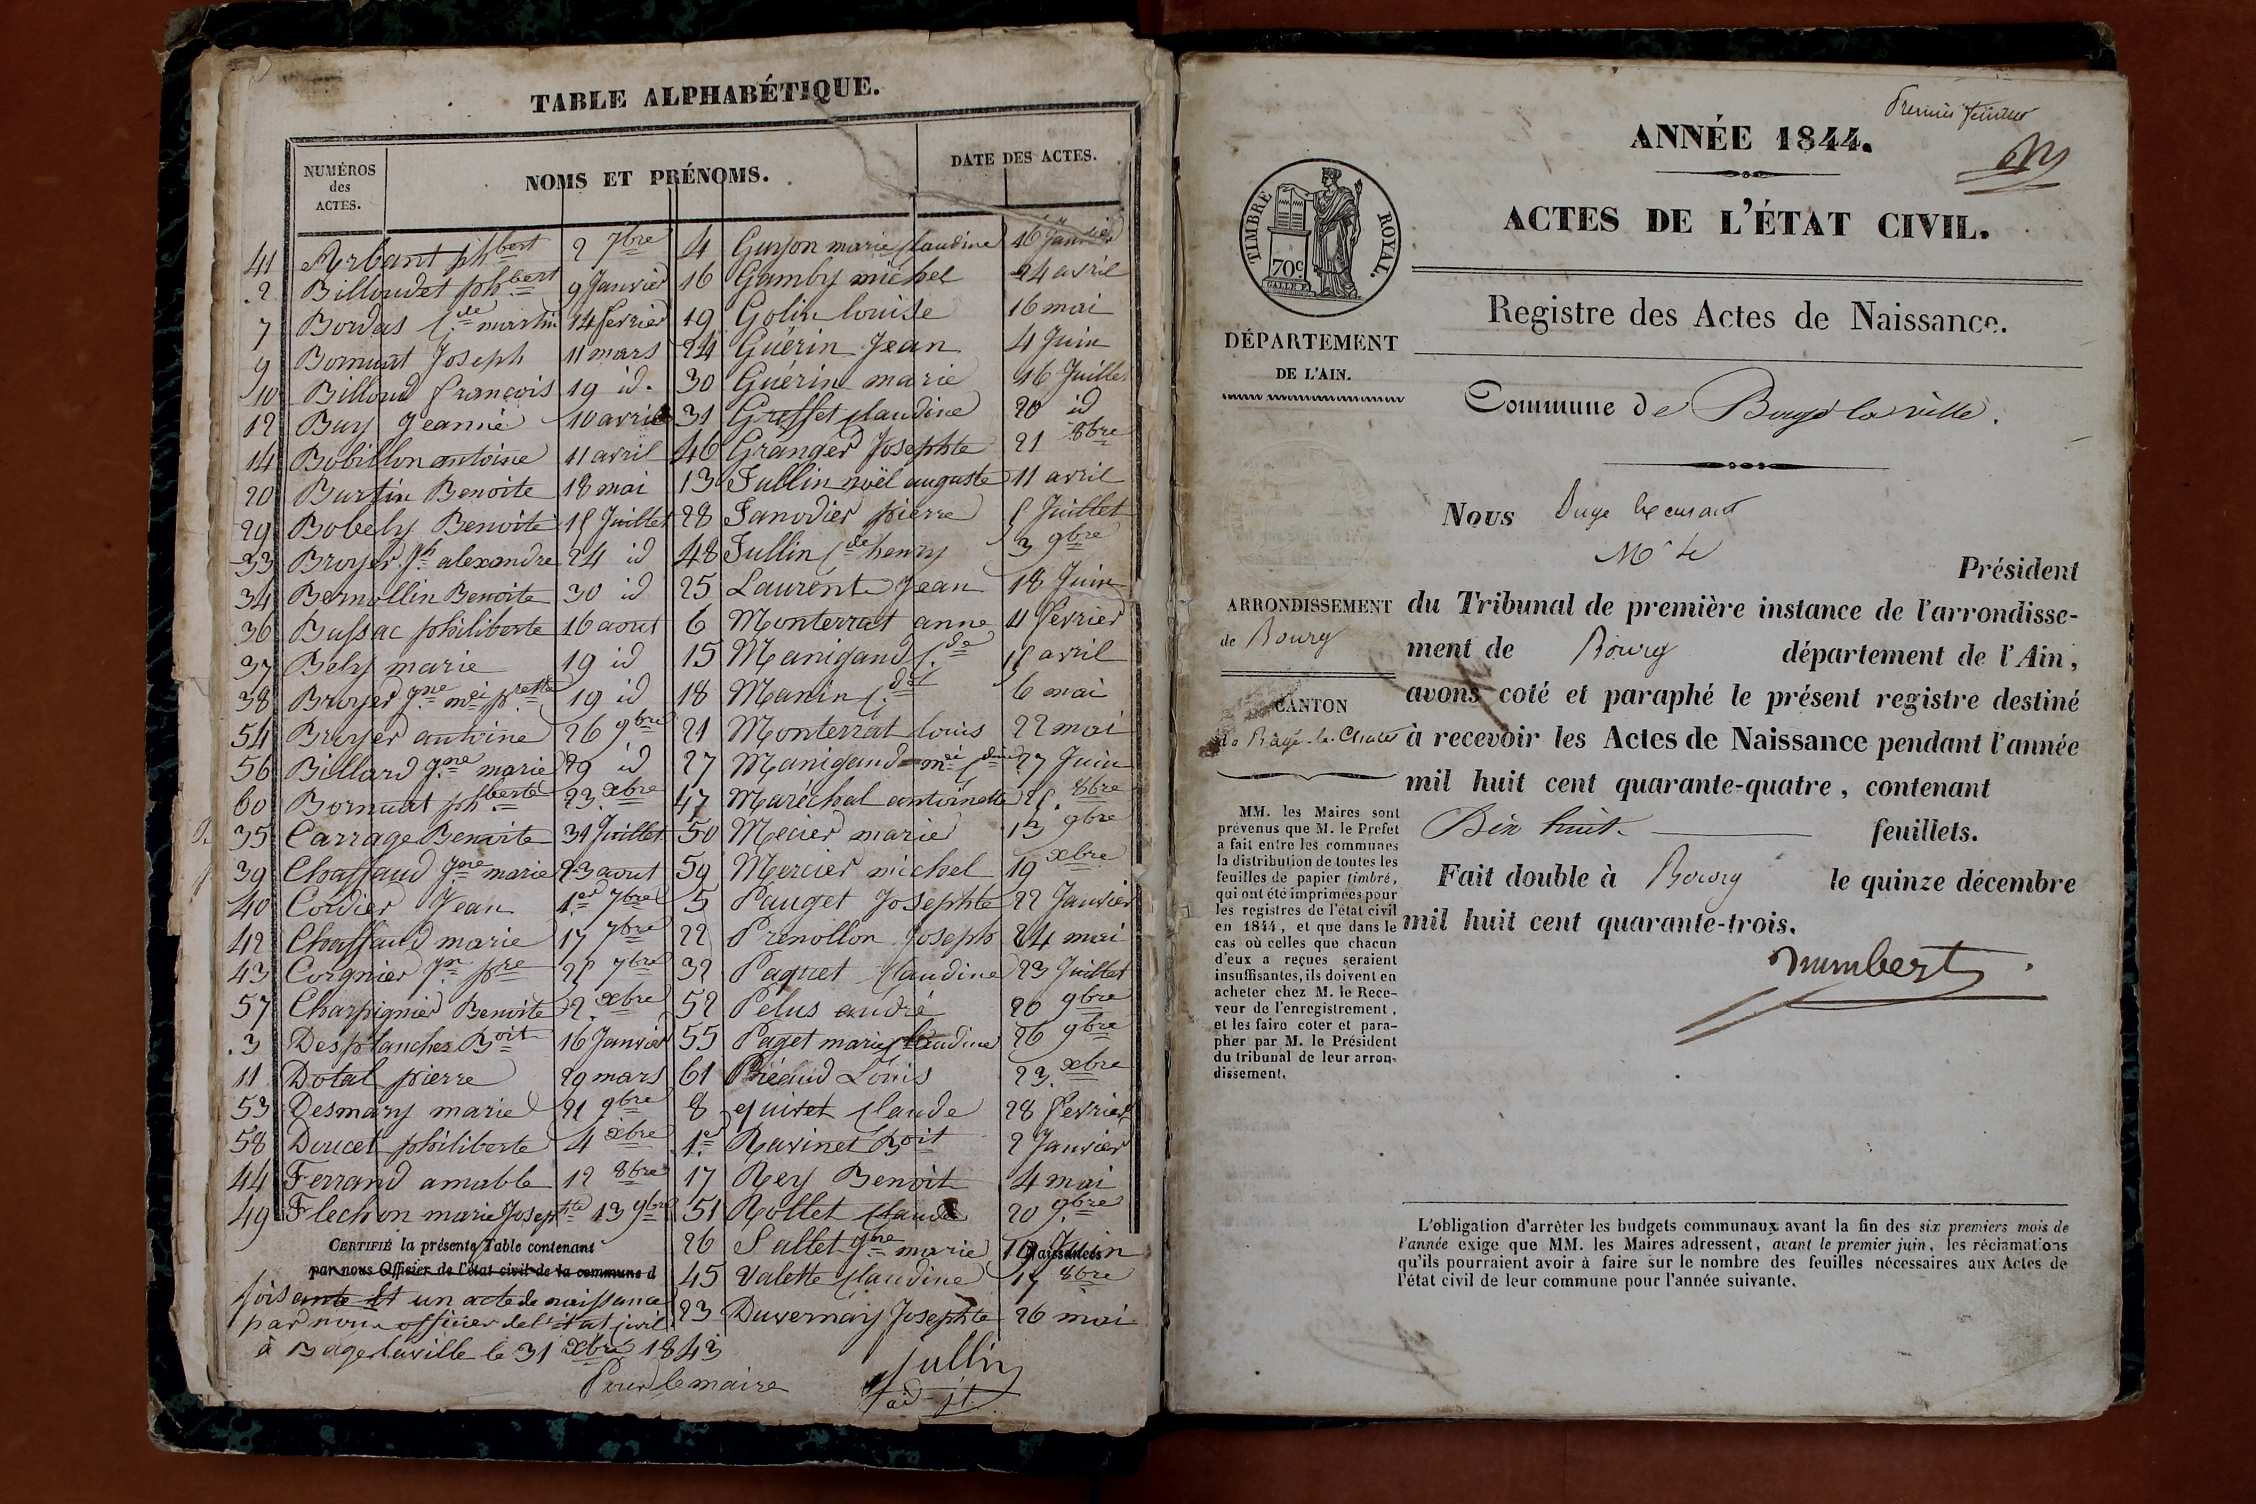 TABLE ALPHABÉTIQUE.
NUMÉROS des ACTES.
NOMS ET PRÉNOMS.
DATE DES ACTES.
41 Arbant phbert 2 7bre
2 Billoudet phbert 9 Janvier
7 Bordas Cde martin 14 fevrier
9 Bornuat Joseph 11 mars
10 Billoud françois 19 id.
12 Buy Jeanne 10 avril
14 Bobillon antoine 11 avril
20 Burtin Benoite 18 mai
29 Bobely Benoite 15 Juillet
33 Broyer Jh alexandre 24 id
34 Bernollin Benoite 30 id
36 Bussac philiberte 16 aout
37 Bely marie 19 id
38 Broyer Jne mei prette 19 id
54 Broyer antoine 26 9bre
56 Billard Jne marie 29 id
60 Bornuat phberte 23 xbre
35 Carrage Benoite 31 Juillet
39 Chaffaud Jne marie 23 aout
40 Cordier Jean 1er 7bre
42 Chaffaud marie 17 7bre
43 Corgnier Jn pre 25 7bre
57 Charpignier Benoite 2 xbre
3 Desplanches Boit 16 Janvier
11 Dotal pierre 29 mars
53 Desmary marie 21 9bre
58 Doucet philiberte 4 xbre
44 Ferrand amable 12 8bre
49 Flechon marie Josephte 13 9bre
4 Guyon marie Claudine 16 Janvier
16 Gamby michel 24 avril
19 Golin louise 16 mai
24 Guérin Jean 4 Juin
30 Guérin marie 16 Juillet
31 Greffet Claudine 20 id
46 Granger Josephte 21 8bre
13 Jullin noël auguste 11 avril
28 Janodier pierre 5 Juillet
48 Jullin Cde henry 3 9bre
25 Laurent Jean 18 Juin
6 Monterrat anne 11 fevrier
15 Manigaud Cde 15 avril
18 Manin Cde 6 mai
21 Monterrat louis 22 mai
27 Manigaud mei Cdine 27 Juin
47 Maréchal antoinette 25 8bre
50 Mecier marie 13 9bre
59 Mercier michel 19 xbre
5 Pauget Josephte 22 Janvier
22 Prenollon Joseph 24 mai
32 Paquet Claudine 23 Juillet
52 Pelus andré 20 9bre
55 Paget marie Claudine 26 9bre
61 Préaud Louis 23 xbre
8 quivet Claude 28 fevrier
1er Ravinet Boit 2 Janvier
17 Rey Benoit 4 mai
51 Rollet Claude 20 9bre
26 Sallet Jne marie 19 Juin
45 Valette Claudine 17 8bre
23 Duvernay Josephte 26 mai
CERTIFIÉ la présente Table contenant Naissances
par nous Officier de l'état civil de la commune d
soisante et un acte de naissance
par nous officier de l'état civil
à Bagé laville le 31 xbre 1843
Pour le maire
Jullin
ad-jt.
Premier feuillet
ANNÉE 1844.
ACTES DE L'ÉTAT CIVIL.
TIMBRE ROYAL.
70c
Registre des Actes de Naissance.
DÉPARTEMENT
DE L'AIN.
Commune de Bagé la ville.
Nous Juge
Mr le
Président
ARRONDISSEMENT
de Bourg
CANTON
de Bagé-le-Chatel
du Tribunal de première instance de l'arrondisse-
ment de Bourg département de l'Ain,
avons coté et paraphé le présent registre destiné
à recevoir les Actes de Naissance pendant l'année
mil huit cent quarante-quatre, contenant
Dix huit feuillets.
Fait double à Bourg le quinze décembre
mil huit cent quarante-trois.
MM. les Maires sont
prévenus que M. le Préfet
a fait entre les communes
la distribution de toutes les
feuilles de papier timbré,
qui ont été imprimées pour
les registres de l'état civil
en 1844, et que dans le
cas où celles que chacun
d'eux a reçues seraient
insuffisantes, ils doivent en
acheter chez M. le Rece-
veur de l'enregistrement,
et les faire coter et para-
pher par M. le Président
du tribunal de leur arron-
dissement.
L'obligation d'arrêter les budgets communaux avant la fin des six premiers mois de
l'année exige que MM. les Maires adressent, avant le premier juin, les réclamations
qu'ils pourraient avoir à faire sur le nombre des feuilles nécessaires aux Actes de
l'état civil de leur commune pour l'année suivante.